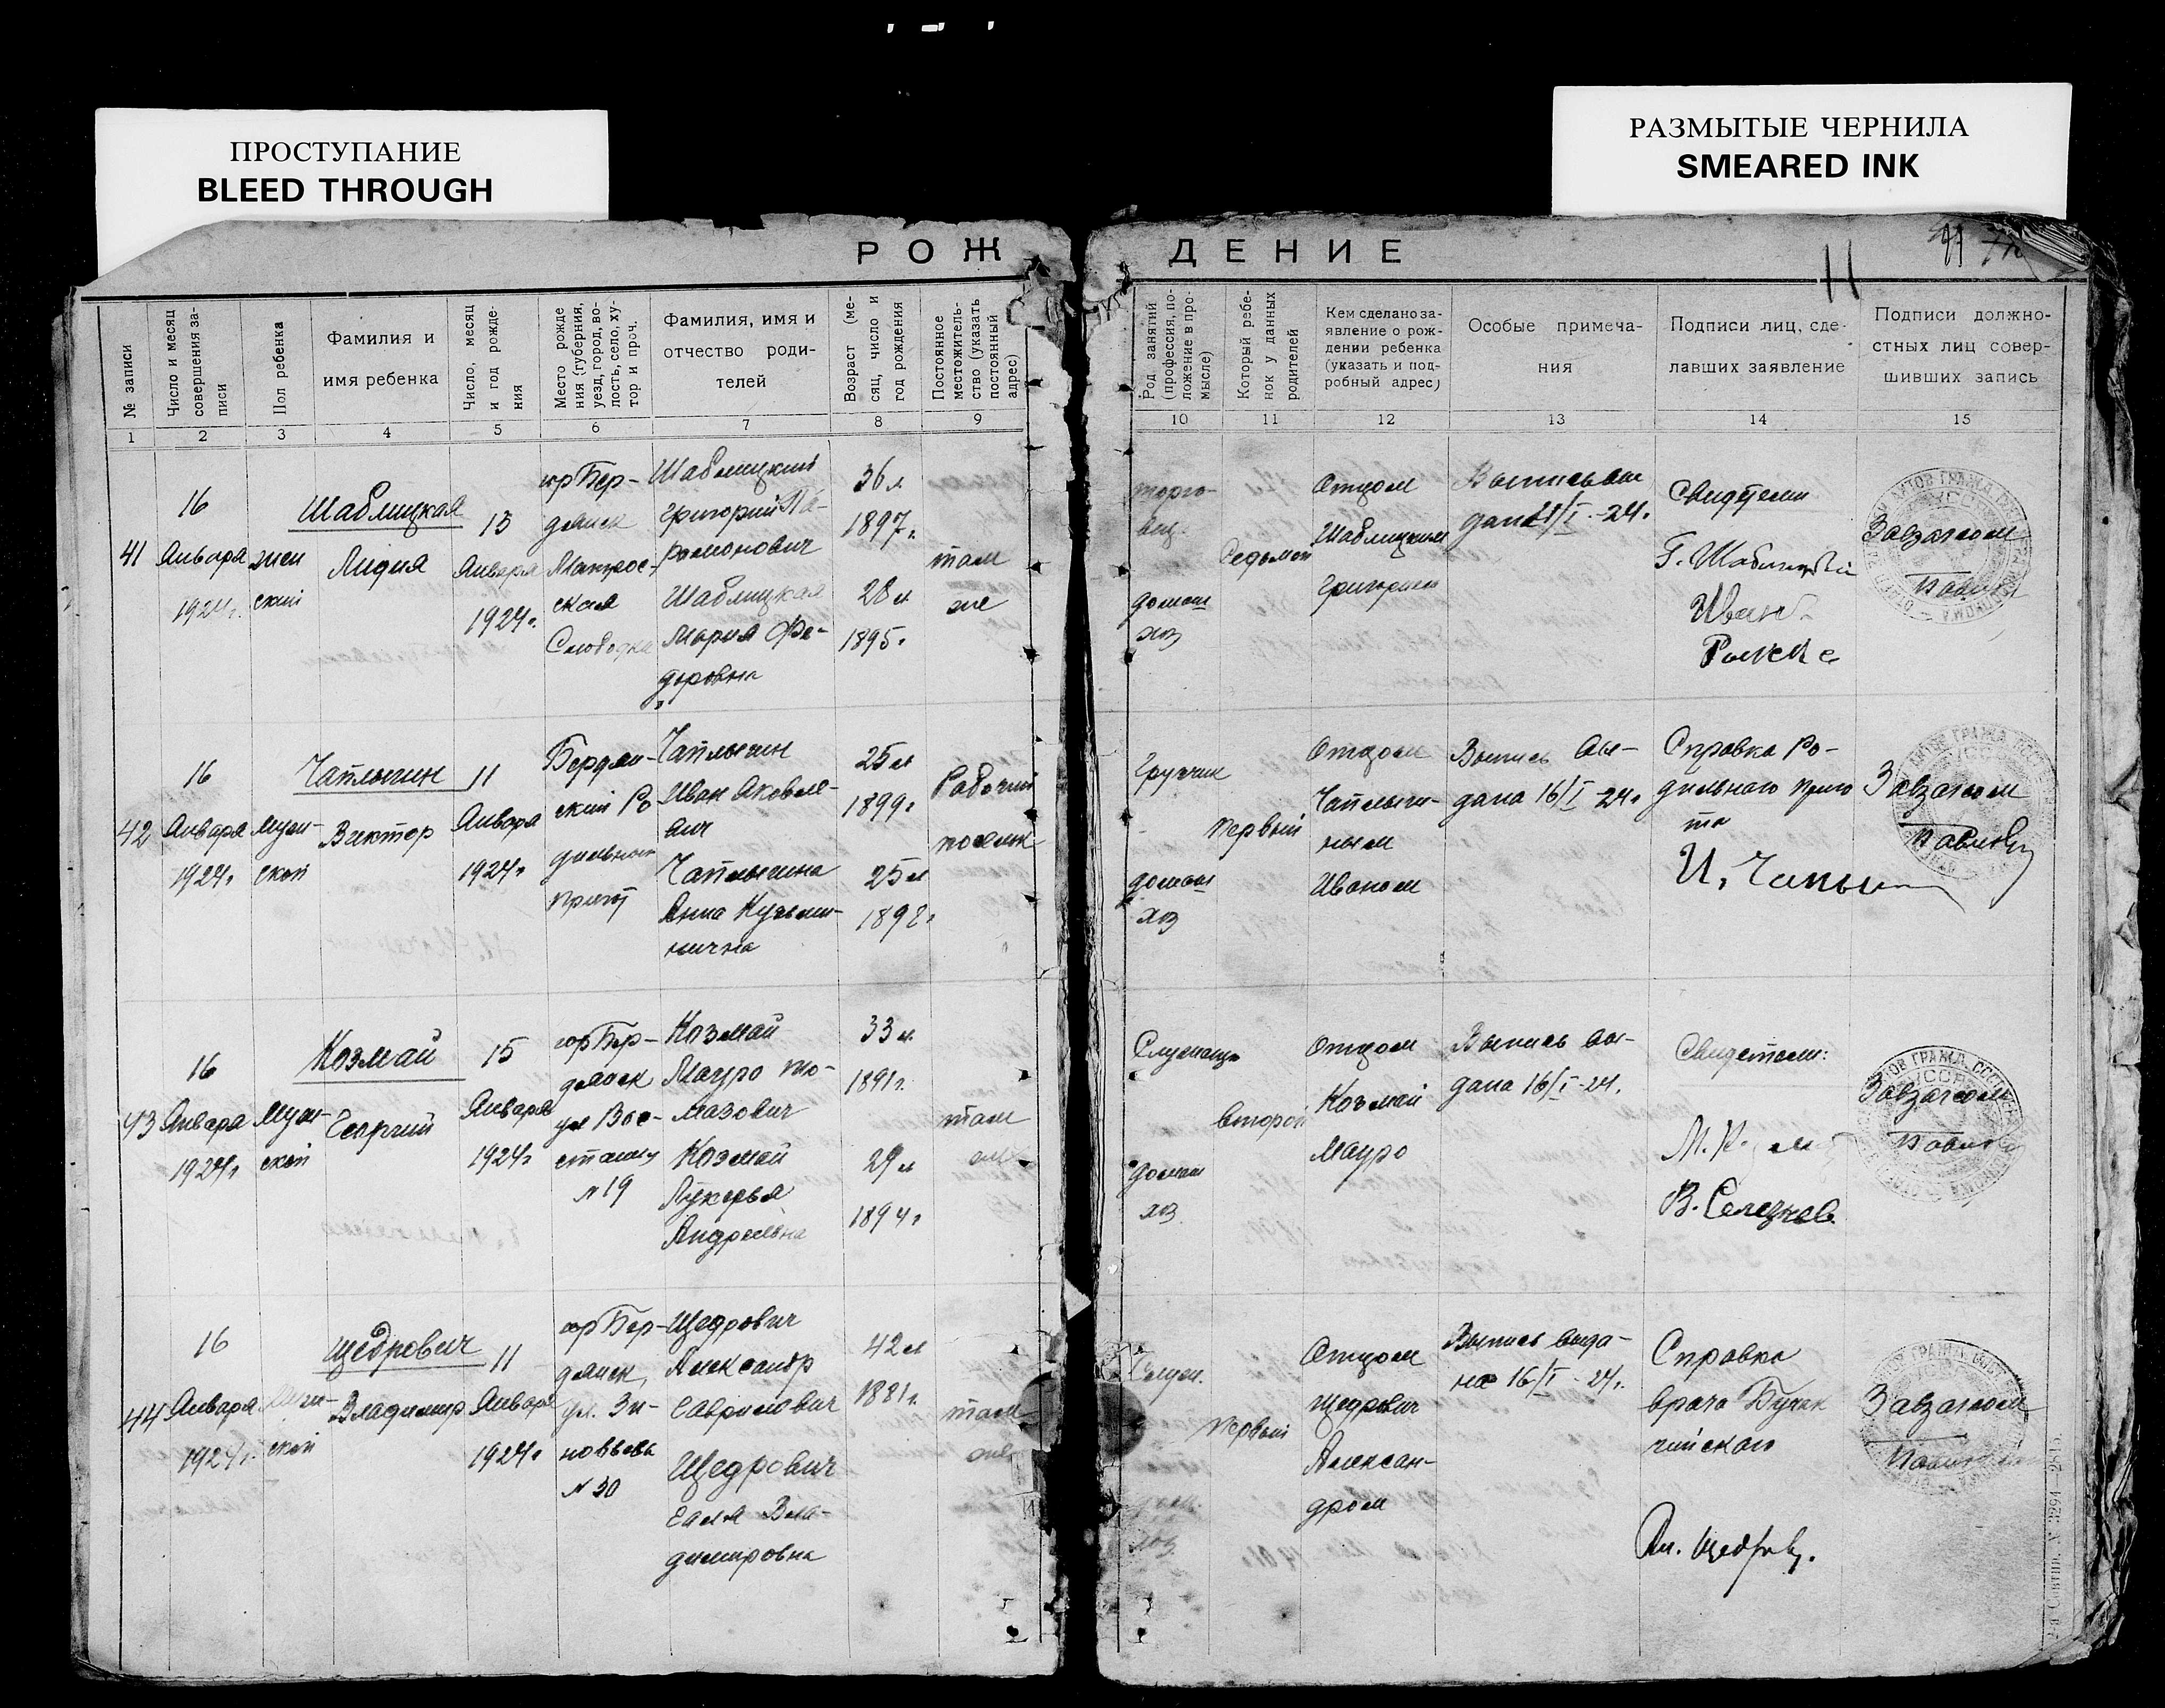 ПРОСТУПАНИЕ
BLEED THROUGH
РАЗМЫТЫЕ ЧЕРНИЛА
SMEARED INK
РОЖДЕНИЕ
11
№ записи
Число и месяц
совершения за-
писи
Пол ребенка
Фамилия и
имя ребенка
Число, месяц
и год рожде-
ния
Место рожде
ния (губерния,
уезд, город, во-
лость, село, ху-
тор и проч.
Фамилия, имя и
отчество роди-
телей
Возраст (ме-
сяц, число и
год рождения
Постоянное
местожитель-
ство (указать
постоянный
адрес)
Род занятий
(профессия, по-
ложение в про-
мысле)
Который ребе-
нок у данных
родителей
Кем сделано за-
явление о рож-
дении ребенка
(указать и под-
робный адрес)
Особые примеча-
ния
Подписи лиц, сде-
лавших заявление
Подписи должно-
стных лиц совер-
шивших запись
1 2 3 4 5 6 7 8 9 10 11 12 13 14 15
41
16
Января
1924г.
жен
ский
Шаблицкая
Лидия
15
Января
1924г.
гор Бер-
дянск
Матрос-
ская
Слободка
Шаблицкий
Григорий Па-
рамонович
Шаблицкая
Мария Фе-
доровна
36 л
1897г.
28 л
1895г.
там
же
торго-
вец.
домаш
хоз
Седьмой
Отцом
Шаблицким
Григорием
Выпись вы
дана 21/I -24г.
Свидетели
Г. Шаблицкий
Иван
Завзагсом
42
16
Января
1924г.
муж-
ской
Чаплыгин
Виктор
11
Января
1924г.
Бердян-
ский Ро
дильный
приют
Чаплыгин
Иван Яковле-
вич
Чаплыгина
Анна Кузьми-
нична
25 л
1899г.
25 л
1898г.
Рабочий
поселок
Грузчик
домаш
хоз
первый
Отцом
Чаплыги-
ным
Иваном
Выпись вы-
дана 16/I -24г.
Справка Ро-
дильного прию
та
Завзагсом
43
16
Января
1924г.
муж-
ской
Козмай
Георгий
15
Января
1924г.
гор Бер-
дянск
ул Вос-
стания
№ 19
Козмай
Мауро То-
мазович
Козмай
Лукерья
Андреевна
33 л.
1891г.
29 л
1894г.
там
же
Служащ
домаш
хоз
второй
Отцом
Козмай
Мауро
Выпись вы-
дана 16/I -24г.
Свидетели:
В. Селезнев
Завзагсом
44
16
Января
1924г.
муж-
ской
Щедрович
Владимир
11
Января
1924г.
гор Бер-
дянск,
ул. Зи-
новьева
№ 30
Щедрович
Александр
Гаврилович
Щедрович
Владимировна
42 л
1881г.
там
же
Служ.
дом.
хоз.
первый
Отцом
Щедрович
Алексан-
дром
Выпись выда-
на 16/I -24г.
Справка
врача
Ал. Щедров.
Завзагсом